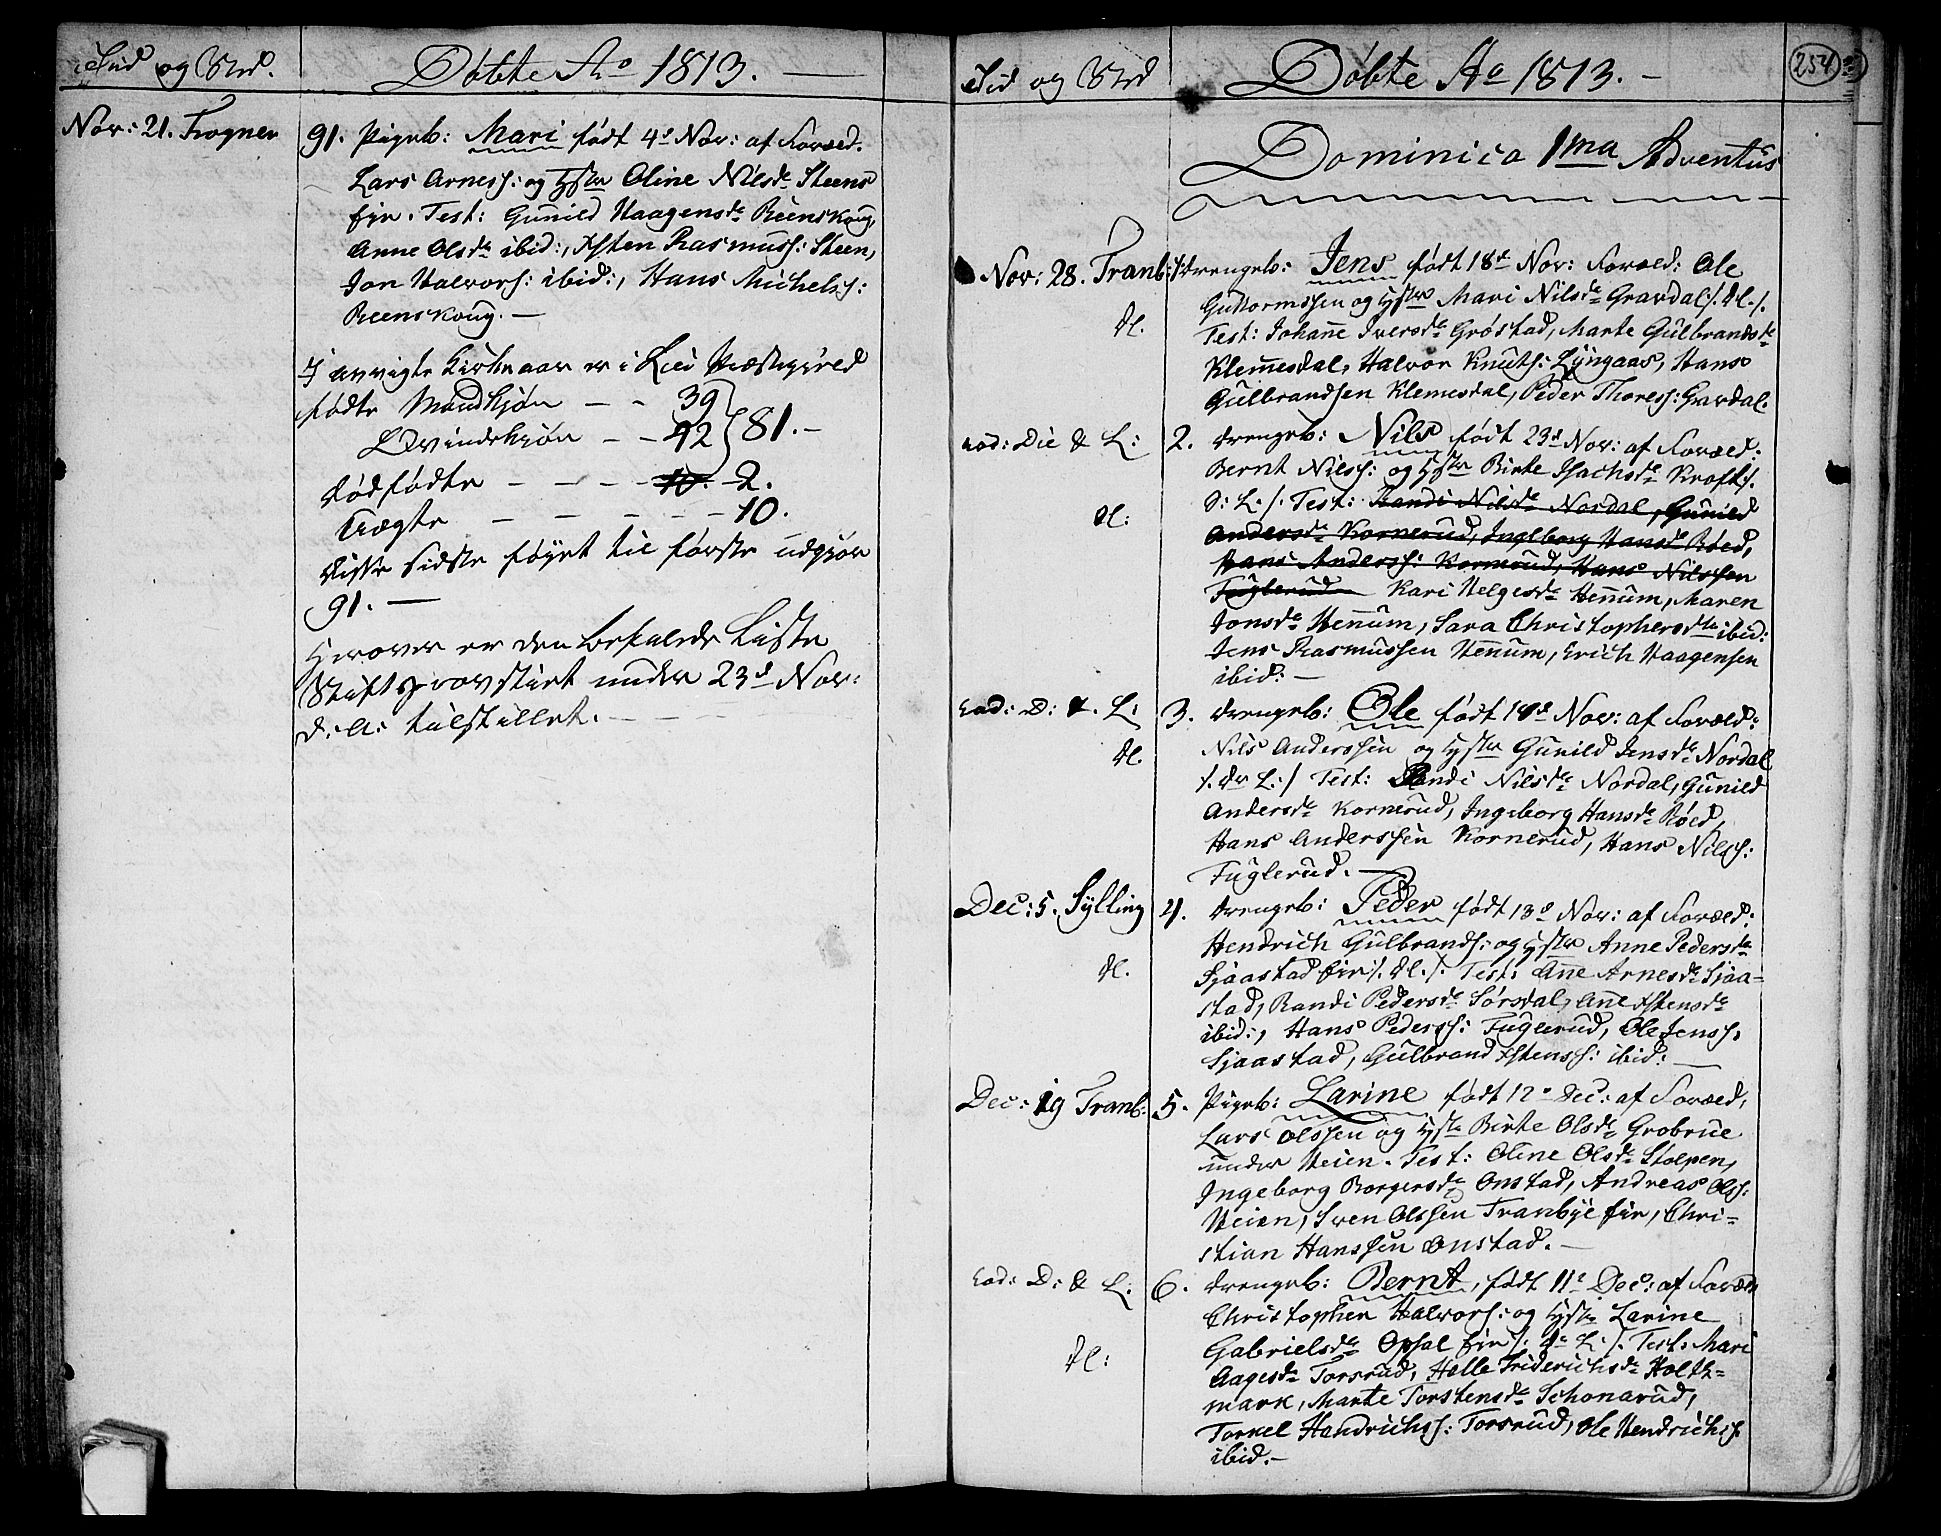 Tid og Sted.
Döbte Ao 1813.
Nov: 21. Frogner
91. Pigeb: Mari født 4de Nov: af Foræld.
Lars Arness: og Hstr Oline Nilsdr Steens
eje. Test: Gunild Haagensdr Reenskoug,
Anne Olsdr ibid:, Xsten Rasmuss: Steen,
Jon Halvors: ibid:, Hans Michels:
Reenskoug. —
I afvigte Kirkeaar er i Lier Præstegield
fødte Mandkjøn — - 39
Qvindekjøn - - 42 } 81. -
Dødfødte - - - - 10. 2.
Uægte - - - - - 10.
disse sidste føyet til første udgjør
91. —
Herover er den befalede Liste
Stiftsprovstiet under 23d Nov:
d: A: tilstillet. —
Tid og Sted
Döbte Ao 1813. -
254
Dominica 1ma Adventus
Nov: 28. Tranb:
1. Drengeb: Jens født 18de Nov: Foræld: Ole
Guttormssen og Hstr Mari Nilsdr Gravdal /: Dl. :/
Dl.
Test: Johane Iversdr Gröstad, Marte Gulbrandsdr
Klemesdal, Halvor Knuts: Lÿngaas, Hans
Gulbrandsen Klemesdal, Peder Thores: Gravdal.
eod: Die & L:
2. Drengeb: Nils født 23d Nov: af Foræld:
Bernt Nils: og Hstr Birte Isachsdr Kraft /:
Dl:
D: L: /. Test: Randi Nilsdr Nordal, Gunild
Andersdr Kornerud, Ingeborg Hansdr Röed,
Hans Anderss: Kornerud, Hans Nilssen
Fuglerud Kari Helgesdr Henum, Maren
Jonsdr Henum, Sara Christophersdtr ibid:
Jens Rasmussen Henum, Erich Haagensen
ibid: —
eod: D: & L:
3. Drengeb: Ole født 14d Nov: af Foræld:
Nils Anderssen og Hstr Gunild Jensdr Nordal
Dl.
/: Dr L: / Test: Randi Nilsdr Nordal, Gunild
Andersdr Kornerud, Ingeborg Hansdr Röed,
Hans Anderssen Kornerud, Hans Nils:
Fuglerud. —
Dec: 5. Sylling
4. Drengeb: Peder født 13d Nov: af Foræld:
Hendrich Gulbrands: og Hstr Anne Pedersdr
Dl.
Sjaastad eje /: Dl. /. Test: Ane Arnesdr Sjaa-
stad, Randi Pedersdr Sörsdal, Ane Xstensdr
ibid:, Hans Peders: Fuglerud, Ole Jens:
Sjaastad, Gulbrand Xstens: ibid: —
Dec: 19 Tranb:
5. Pigeb: Larine født 12e Dec: af Foræld,
Lars Olssen og Hstr Birte Olsdr Grobrue
under Heien. Test: Oline Olsdr Stolpen,
Ingeborg Borgersdr Onstad, Andreas Ols:
Heien, Sven Olssen Tranbye eje, Chri-
stian Hanssen Onstad. —
eod: D: & L:
6. Drengeb: Bernt, født 11e Dec: af Foræld
Christopher Halvors: og Hstr Larine
Dl:
Gabrielsdr Opsal eje /: Dr L: /. Test: Mari
Aagesdr Torsrud, Helle Friderichsdr Holtz-
mark, Marte Torstensdr Schonarud,
Torkel Hendrichss: Torsrud, Ole Hendrichs:
ibid. —